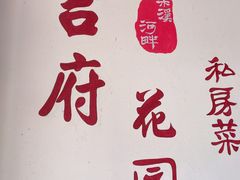 府
溪
河畔
花园
私房菜